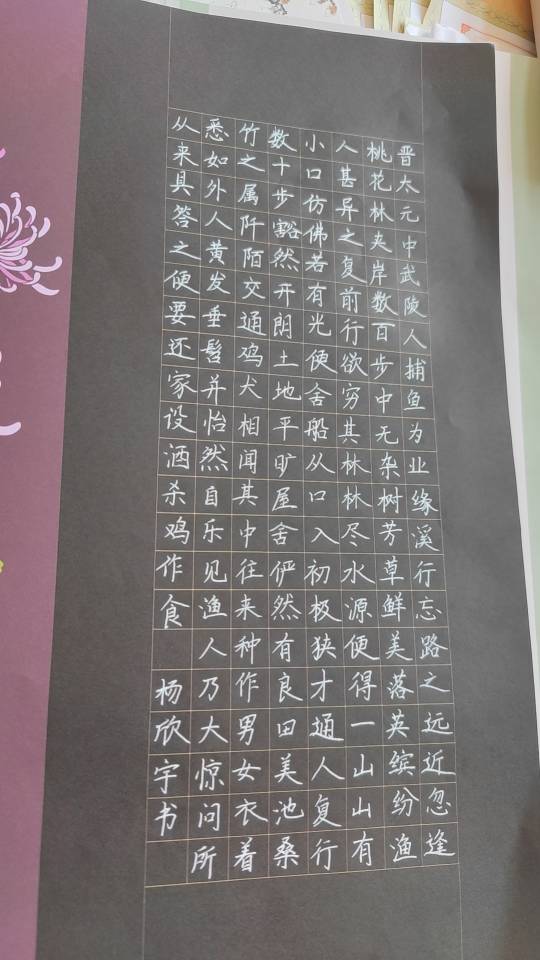 晋太元中武陵人捕鱼为业缘溪行忘路之远近忽逢
桃花林夹岸数百步中无杂树芳草鲜美落英缤纷渔
人甚异之复前行欲穷其林林尽水源便得一山山有
小口仿佛若有光便舍船从口入初极狭才通人复行
数十步豁然开朗土地平旷屋舍俨然有良田美池桑
竹之属阡陌交通鸡犬相闻其中往来种作男女衣着
悉如外人黄发垂髫并怡然自乐见渔人乃大惊问所
从来具答之便要还家设酒杀鸡作食 杨欣宇书